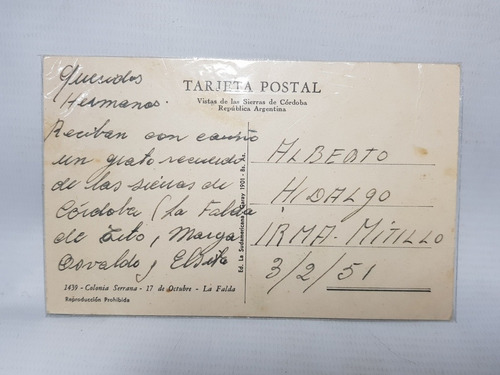 Queridos
Hermanos.
Reciban con cariño
un grato recuerdo
de las sierras de
Córdoba (La Falda
de Tito, Marga
Osvaldo y Elsita
TARJETA POSTAL
Vistas de las Sierras de Córdoba
República Argentina
Ed. La Sudamericana, Garay 1901 - Bs. As.
ALBERTO
HIDALGO
IRMA - MITILLO
3/2/51
1439 - Colonia Serrana - 17 de Octubre - La Falda
Reproducción Prohibida